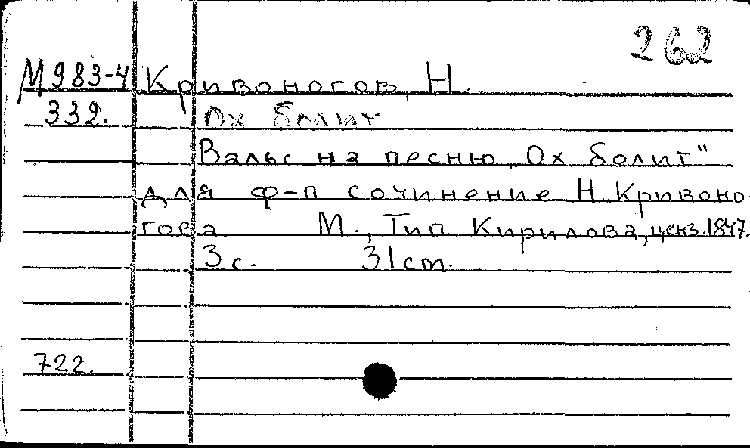 262
М983-4 Кривоногов, Н.
332. Ох болит
Вальс на песню „Ох болит"
для ф-п сочинение Н. Кривоно
гова М., Тип Кирилова, ценз. 1847.
3 с. 31 cm.
722.